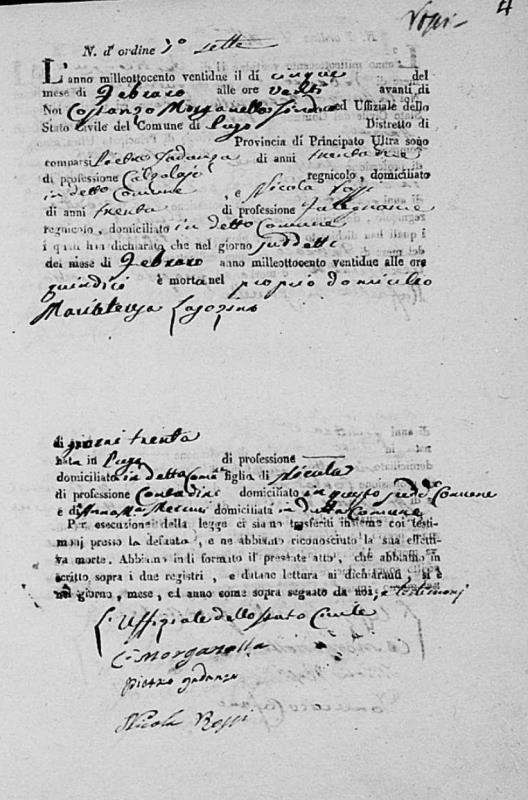 4
N. d'ordine 7° sette
L'anno milleottocento ventidue il di cinque del
mese di Febraro alle ore venti avanti di
Noi Costanzo Morganella Sindaco ed Uffiziale dello
Stato Civile del Comune di Distretto di
Provincia di Principato Ultra sono
comparsi Pietro Iadanza di anni trenta due
di professione Calzolajo regnicolo, domiciliato
in detto Comune, e Nicola
di anni trenta di professione Falegname
regnicolo, domiciliato in detto Comune
i quali han dichiarato che nel giorno suddetti
del mese di Febraro anno milleottocento ventidue alle ore
quindici è morta nel proprio domicilio
Maria Teresa
di giorni trenta
nata in di professione
domiciliata in detto Comune figlia di Nicola
di professione Contadini domiciliato in questo Comune
e di Anna Ma domiciliata in detto Comune
Per esecuzione della legge ci siamo trasferiti insieme coi testi-
monj presso la defunta, e ne abbiamo riconosciuto la sua effetti-
va morte. Abbiamo indi formato il presente atto, che abbiamo in-
scritto sopra i due registri, e datane lettura ai dichiaranti, si è
nel giorno, mese, ed anno come sopra segnato da noi, e testimonj
L'Uffiziale dello stato Civile
C. Morganella
Pietro Iadanza
Nicola